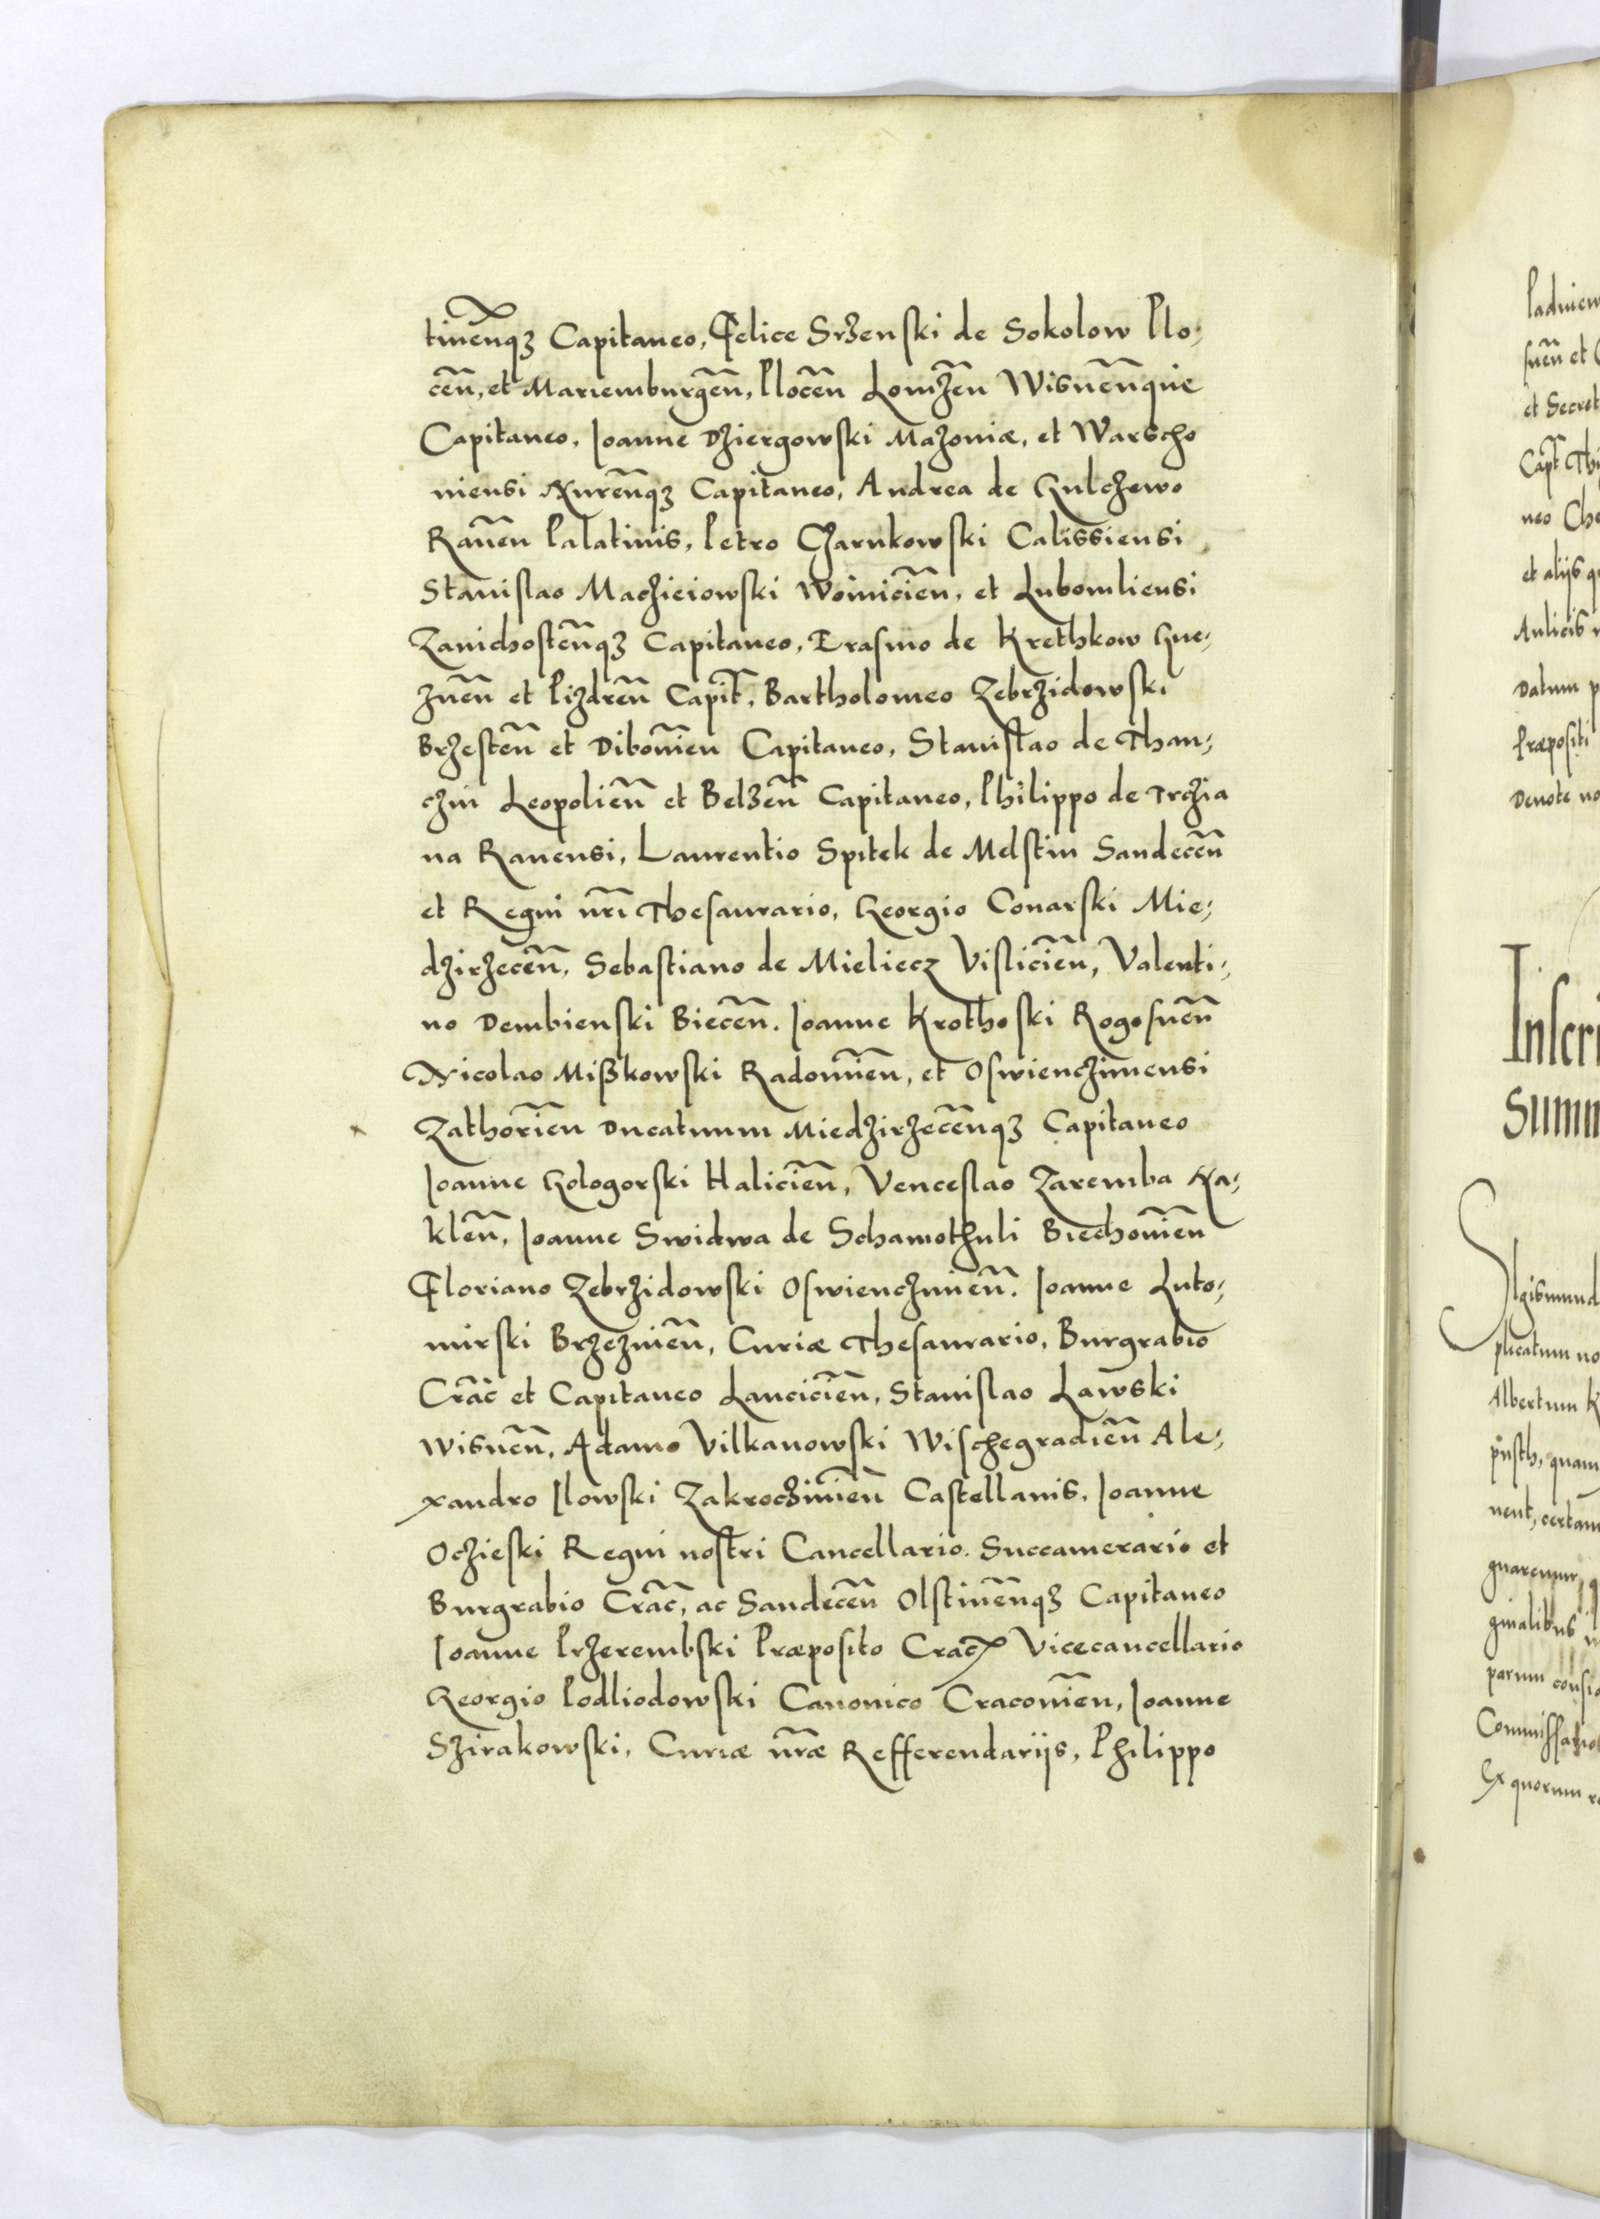 tinēn̄qꝫ Capitaneo, Felice Srzenski de Sokolow Plo-
cen̄, et Mariemburgen̄, Plocen̄ Lomzen̄ Wisnen̄que
Capitaneo, Joanne Dziergowski Mazoniæ, et Warscho
niensi Nuren̄qꝫ Capitaneo, Andrea de Gulczewo
Rauen̄ Palatinis, Petro Czarnkowski Calissiensi
Stanislao Maczieiowski Woinicien̄, et Lubomliensi
Zanichosten̄qꝫ Capitaneo, Erasmo de Krethkow Gne-
znen̄ et Pizdren̄ Capit̄, Bartholomeo Zebrzidowski
Brzesten̄ et Dibouien̄ Capitaneo, Stanislao de Than-
czin Leopolien̄ et Belzen̄ Capitaneo, Philippo de Trczia
na Rauensi, Laurentio Spitek de Melstin Sandecen̄
et Regni nr̄i Thesaurario, Georgio Conarski Mie-
dzirzecen̄, Sebastiano de Mieliecz Vislicien̄, Valenti-
no Dembienski Biecen̄. Joanne Krothoski Rogosnen̄
Nicolao Mißkowski Radomien̄, et Oswienczimensi
Zathorien̄ Ducatuum Miedzirzecen̄qꝫ Capitaneo
Joanne Gologorski Halicien̄, Venceslao Zaremba Na-
klen̄, Joanne Swidwa de Schamothuli Biechouien̄
Floriano Zebrzidowski Oswiencimien̄. Joanne Luto-
mirski Brzezinien̄, Curiæ Thesaurario, Burgrabio
Crac̄ et Capitaneo Lancicien̄, Stanislao Lawski
Wisnen̄, Adamo Vilkanowski Wischegradien̄ Ale-
xandro Ilowski Zakroczimien̄ Castellanis, Joanne
Oczieski Regni nostri Cancellario. Succamerario et
Burgrabio Crac̄, ac Sandecen̄ Olstinen̄qꝫ Capitaneo
Joanne Przerembski Præposito Crac̄ Vicecancellario
Georgio Podliodowski Canonico Cracouien̄, Joanne
Szirakowski, Curiæ nr̄æ Refferendarijs, Philippo
Padniew
snen̄ et
et Secret
Capt̄
neo
et alijs
Aulicis
Datum
Præpositi
Denote
Inscri
Summ
Sigismund
plicatum no
Albertum K
quam
nent, certam
gnaremur,
ginalibus
parum consi
Commissario
Ex quorum